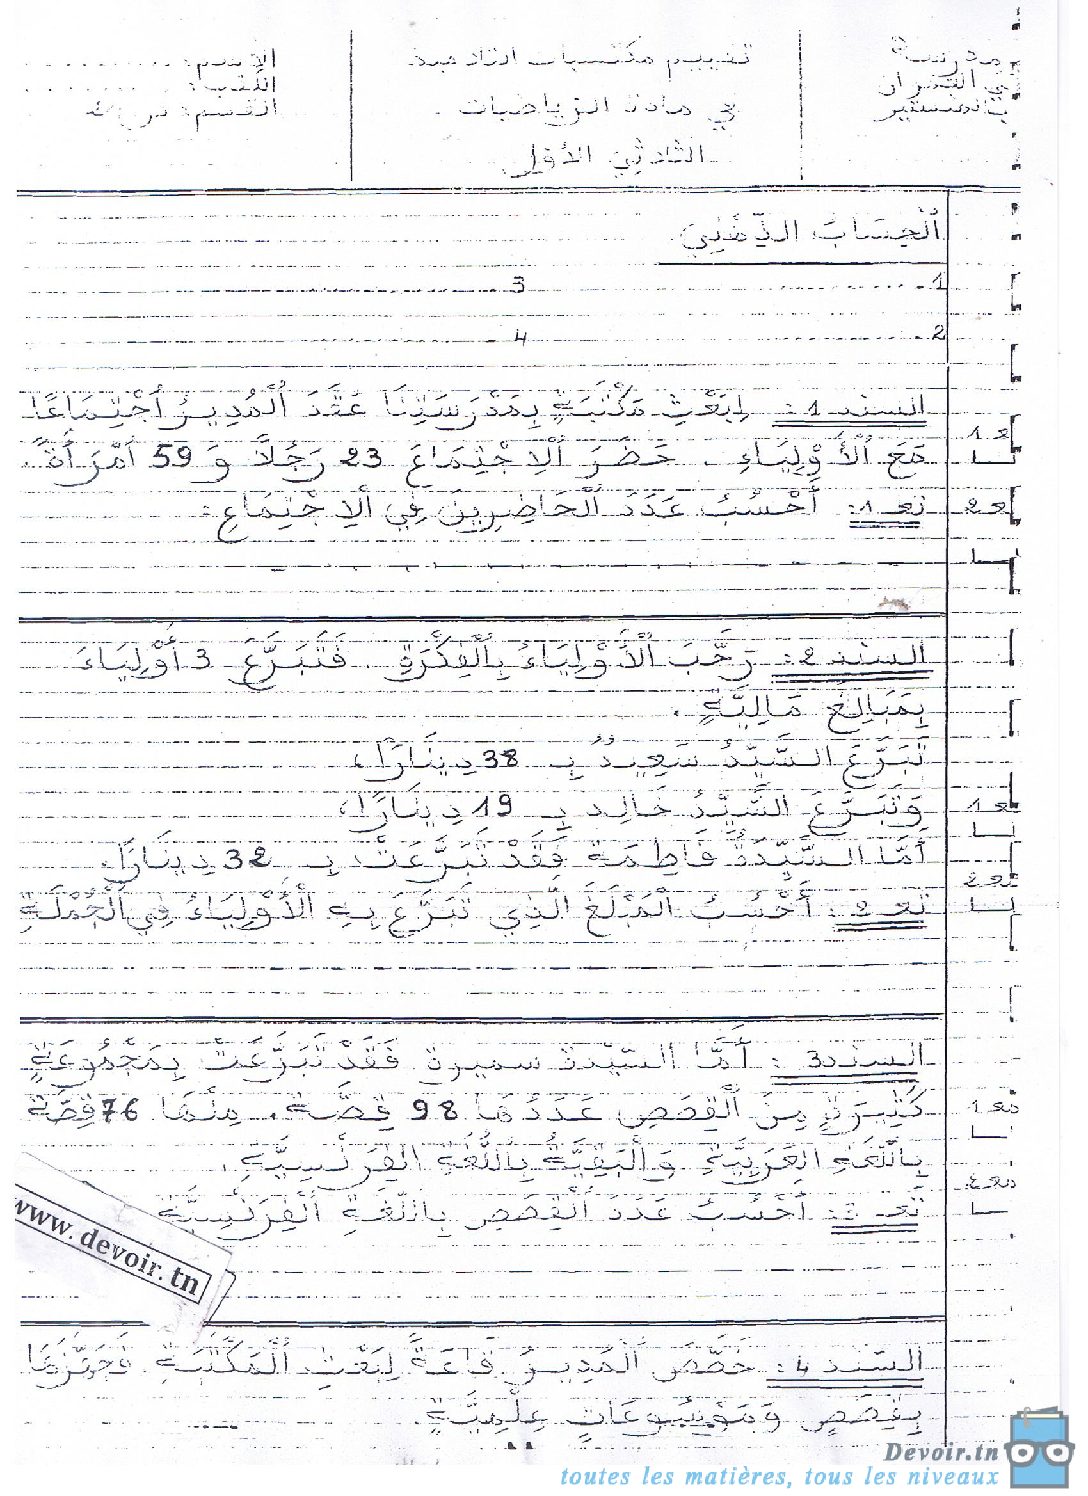 مدرسة
حي القمران
بالمنستير
تقييم مكتسبات التلاميذ
في مادة الرياضيات
الثلاثي الأول
الاسم: ............
اللقب: ............
القسم:
اَلْحِسَابُ الذِّهْنِيّ
1- ............ 3
2- ............ 4
السند 1: لِبَعْثِ مَكْتَبَةٍ بِمَدْرَسَتِنَا عَقَدَ اَلْمُدِيرُ اُجْتِمَاعًا
مَعَ اَلْأَوْلِيَاءِ. حَضَرَ اَلِاجْتِمَاعَ 23 رَجُلاً وَ 59 اَمْرَأَةً.
تعـ 1: أَحْسُبُ عَدَدَ اَلْحَاضِرِينَ فِي اَلِاجْتِمَاعِ:
مع 1
مع 2
السند 2: رَحَّبَ اَلْأَوْلِيَاءُ بِالْفِكْرَةِ. فَتَبَرَّعَ 3 أَوْلِيَاءَ
بِمَبَالِغَ مَالِيَّةٍ.
تَبَرَّعَ السَّيِّدُ سَعِيدُ بِـ 38 دِينَارًا،
وَتَبَرَّعَ السَّيِّدُ خَالِد بِـ 19 دِينَارًا،
أَمَّا السَّيِّدَةُ فَاطِمَة فَقَدْ تَبَرَّعَتْ بِـ 32 دِينَارًا.
تعـ 2: أَحْسُبُ الْمَبْلَغَ الَّذِي تَبَرَّعَ بِهِ اَلْأَوْلِيَاءُ فِي الْجُمْلَةِ
مع 1
مع 2
السند 3: أَمَّا السيّدة سميرة فَقَدْ تَبَرَّعَتْ بِمَجْمُوعَةٍ
كَثِيرَةٍ مِنَ اَلْقِصَصِ عَدَدُهَا 98 قِصَّة. مِنْهَا 76 قِصَّة
بِاللّغَةِ العَرَبِيَّةِ وَالْبَقِيَّةُ بِاللُّغَةِ الفِرَنْسِيَّةِ.
تعـ : أَحْسُبُ عَدَدَ اَلْقِصَصِ بِاللّغَةِ اَلْفِرَنْسِيَّةِ
مع 1
www.devoir.tn
السّند 4: خَصَّصَ اَلْمُدِيرُ قَاعَةً لِبَعْثِ اَلْمَكْتَبَةِ فَجَهَّزَهَا
بِقِصَصٍ وَمَوْسُوعَاتٍ عِلْمِيَّةٍ.
Devoir.tn
toutes les matières, tous les niveaux